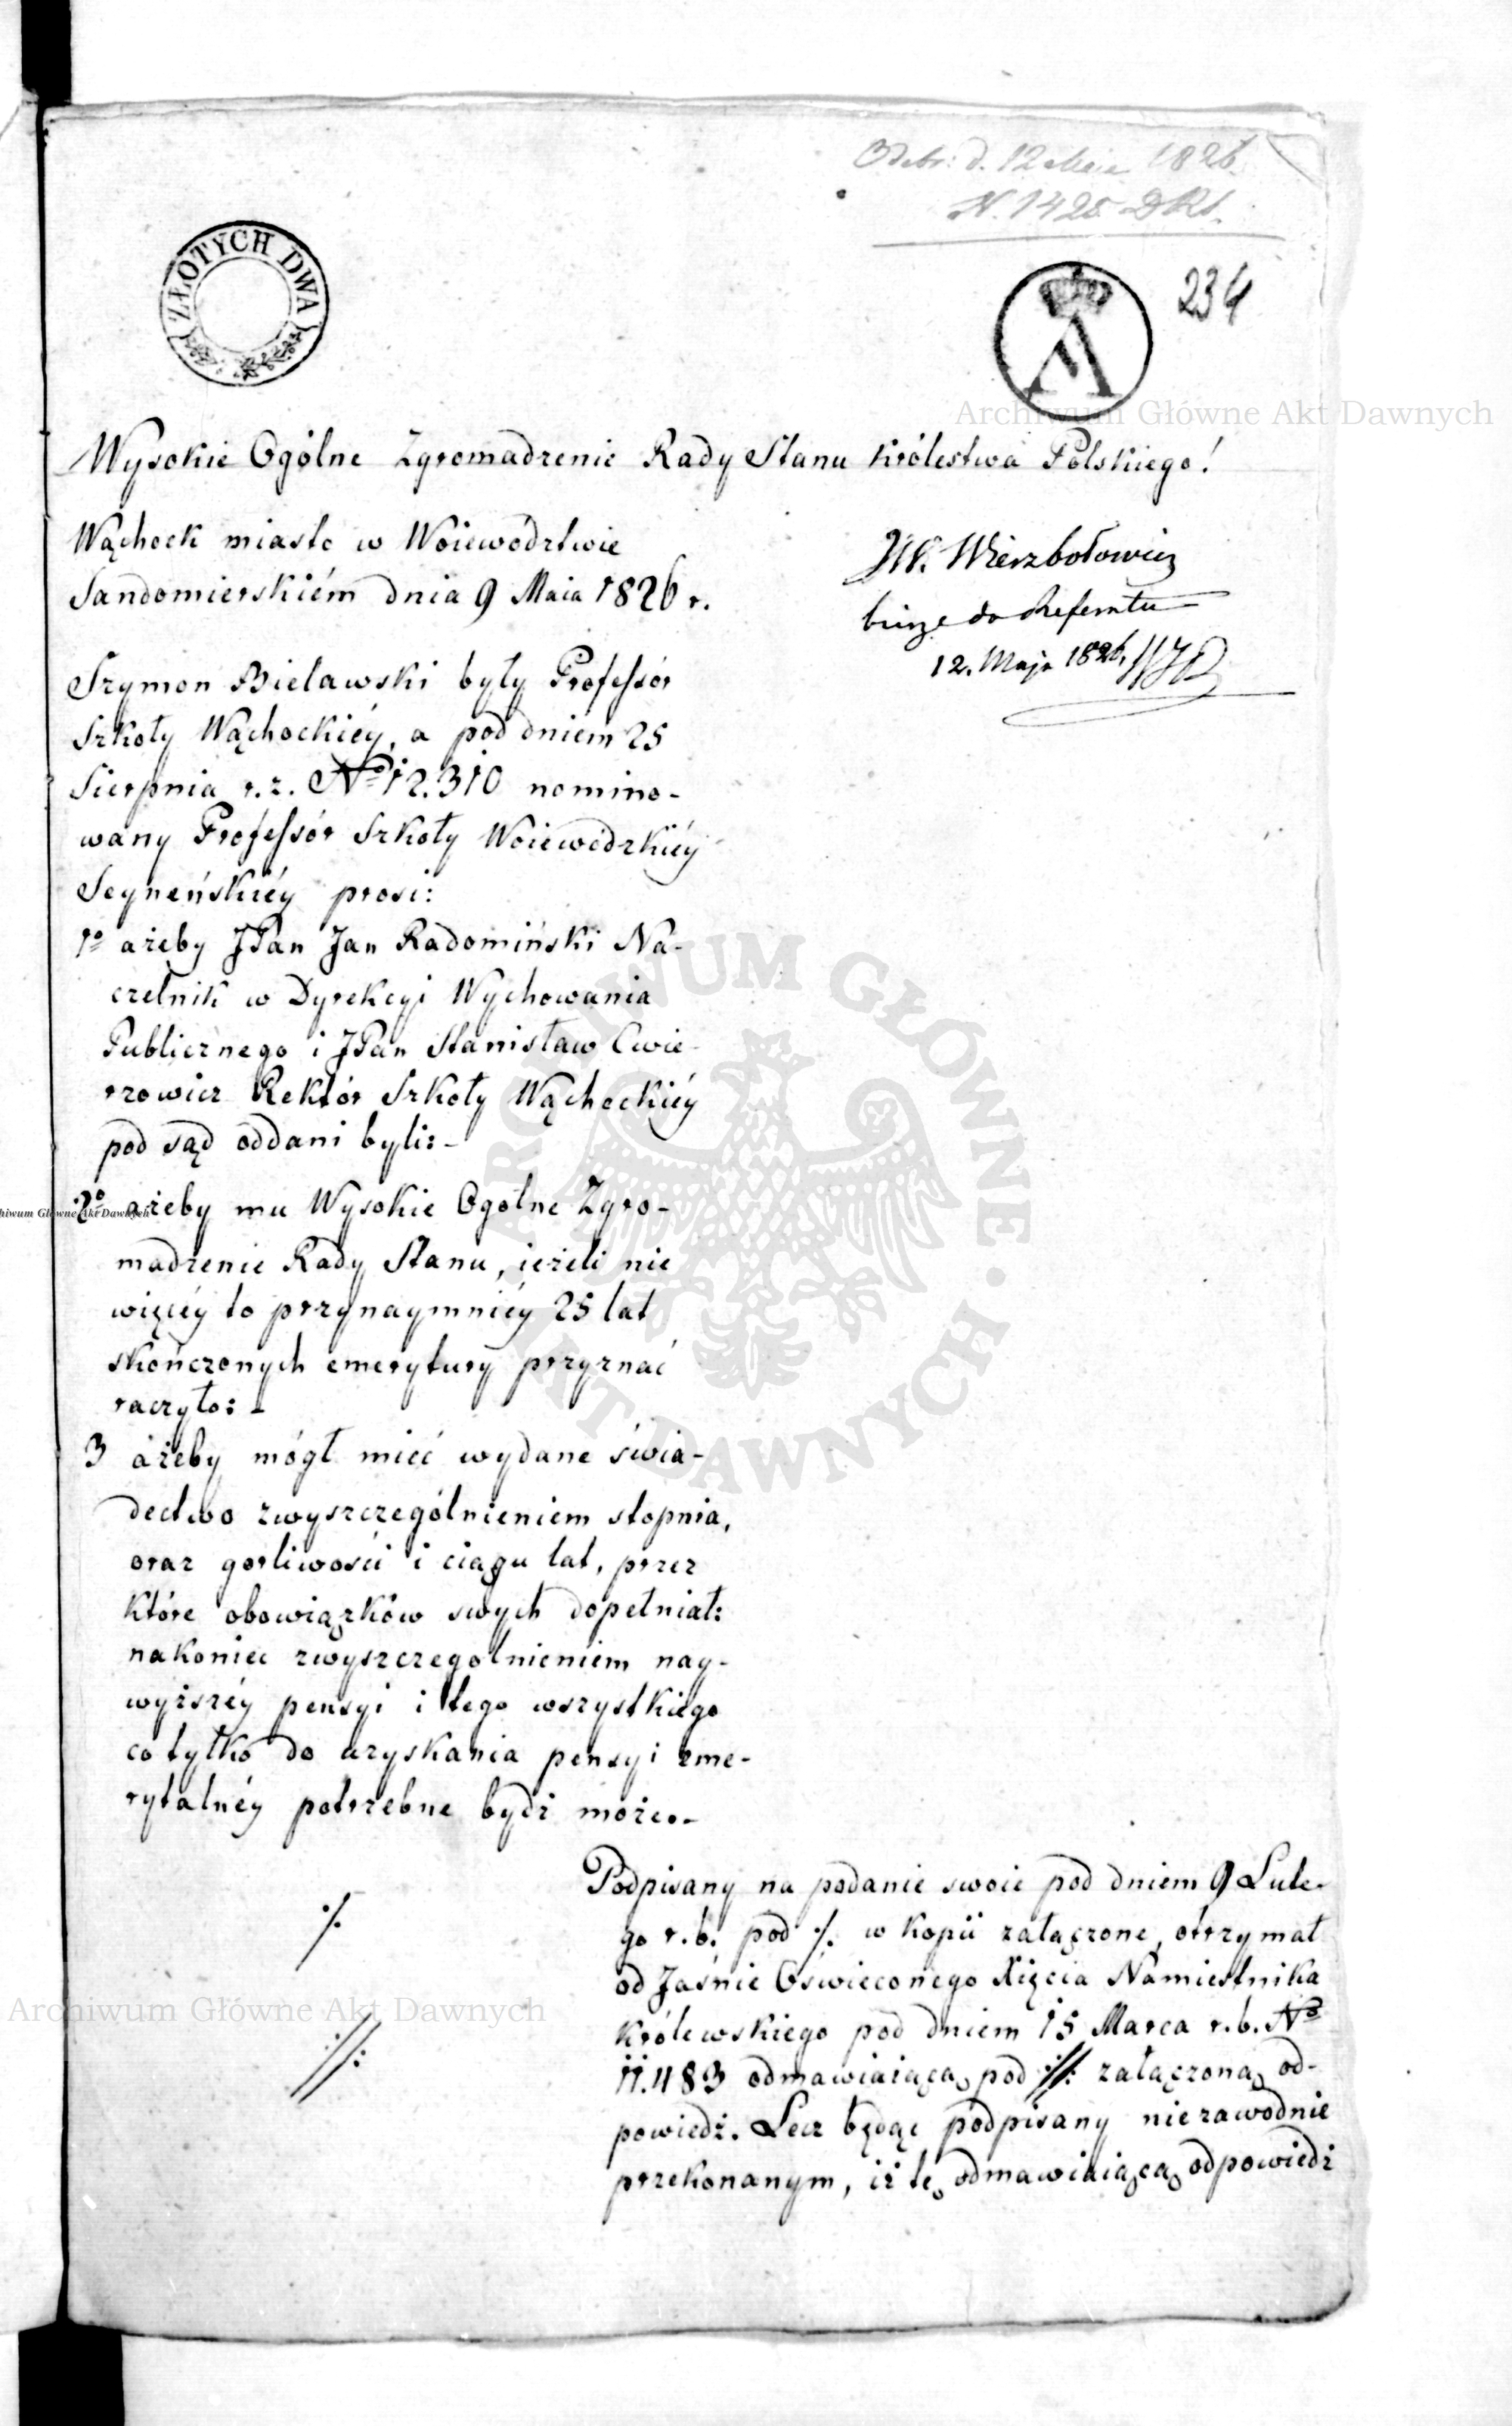 Odebr: d. 12 Maia 1826.
N. 1425 DRS.
ZŁOTYCH DWA
A
234
Wysokie Ogólne Zgromadzenie Rady Stanu Królestwa Polskiego!
Wąchock miasto w Woiewództwie
Sandomierskiém dnia 9 Maia 1826 r.
JW. Wierzbołowicz
do Referatu
12. Maja 1826.
Szymon Bielawski były Professór
Szkoły Wąchockiéy, a pod dniem 25
Sierpnia r.z. No 12.310 nomino-
wany Professór Szkoły Woiewódzkiéy
Seyneńskiéy prosi:
1o ażeby JPan Jan Radomiński Na-
czelnik w Dyrekcyi Wychowania
Publicznego i JPan Stanisław Cwie-
rzowicz Rektór Szkoły Wąchockiéy
pod sąd oddani byli:-
2o ażeby mu Wysokie Ogólne Zgro-
madzenie Rady Stanu, ieżeli nie
więcéy to przynaymniéy 25 lat
skończonych emerytury przyznać
raczyło:-
3 ażeby mógł mieć wydane świa-
dectwo zwyszczególnieniem stopnia,
oraz gorliwości i ciągu lat, przez
które obowiązków swych dopełniał:
nakoniec zwyszczególnieniem nay-
wyższéy pensyi i tego wszystkiego
co tylko do uzyskania pensyi eme-
rytalnéy potrzebne bydź może.-
Podpisany na podanie swoie pod dniem 9 Lute-
go r.b. pod ·/. w kopii załączone, otrzymał
od Jaśnie Oświeconego Xięcia Namiestnika
Królewskiego pod dniem 15 Marca r.b. No
11.483 odmawiaiącą pod :/: załączoną od-
powiedź. Lecz będąc podpisany niezawodnie
przekonanym, iż tę odmawiaiącą odpowiedź
·/.
://:
Archiwum Główne Akt Dawnych
Archiwum Główne Akt Dawnych
Archiwum Główne Akt Dawnych
ARCHIWUM GŁÓWNE · AKT DAWNYCH ·